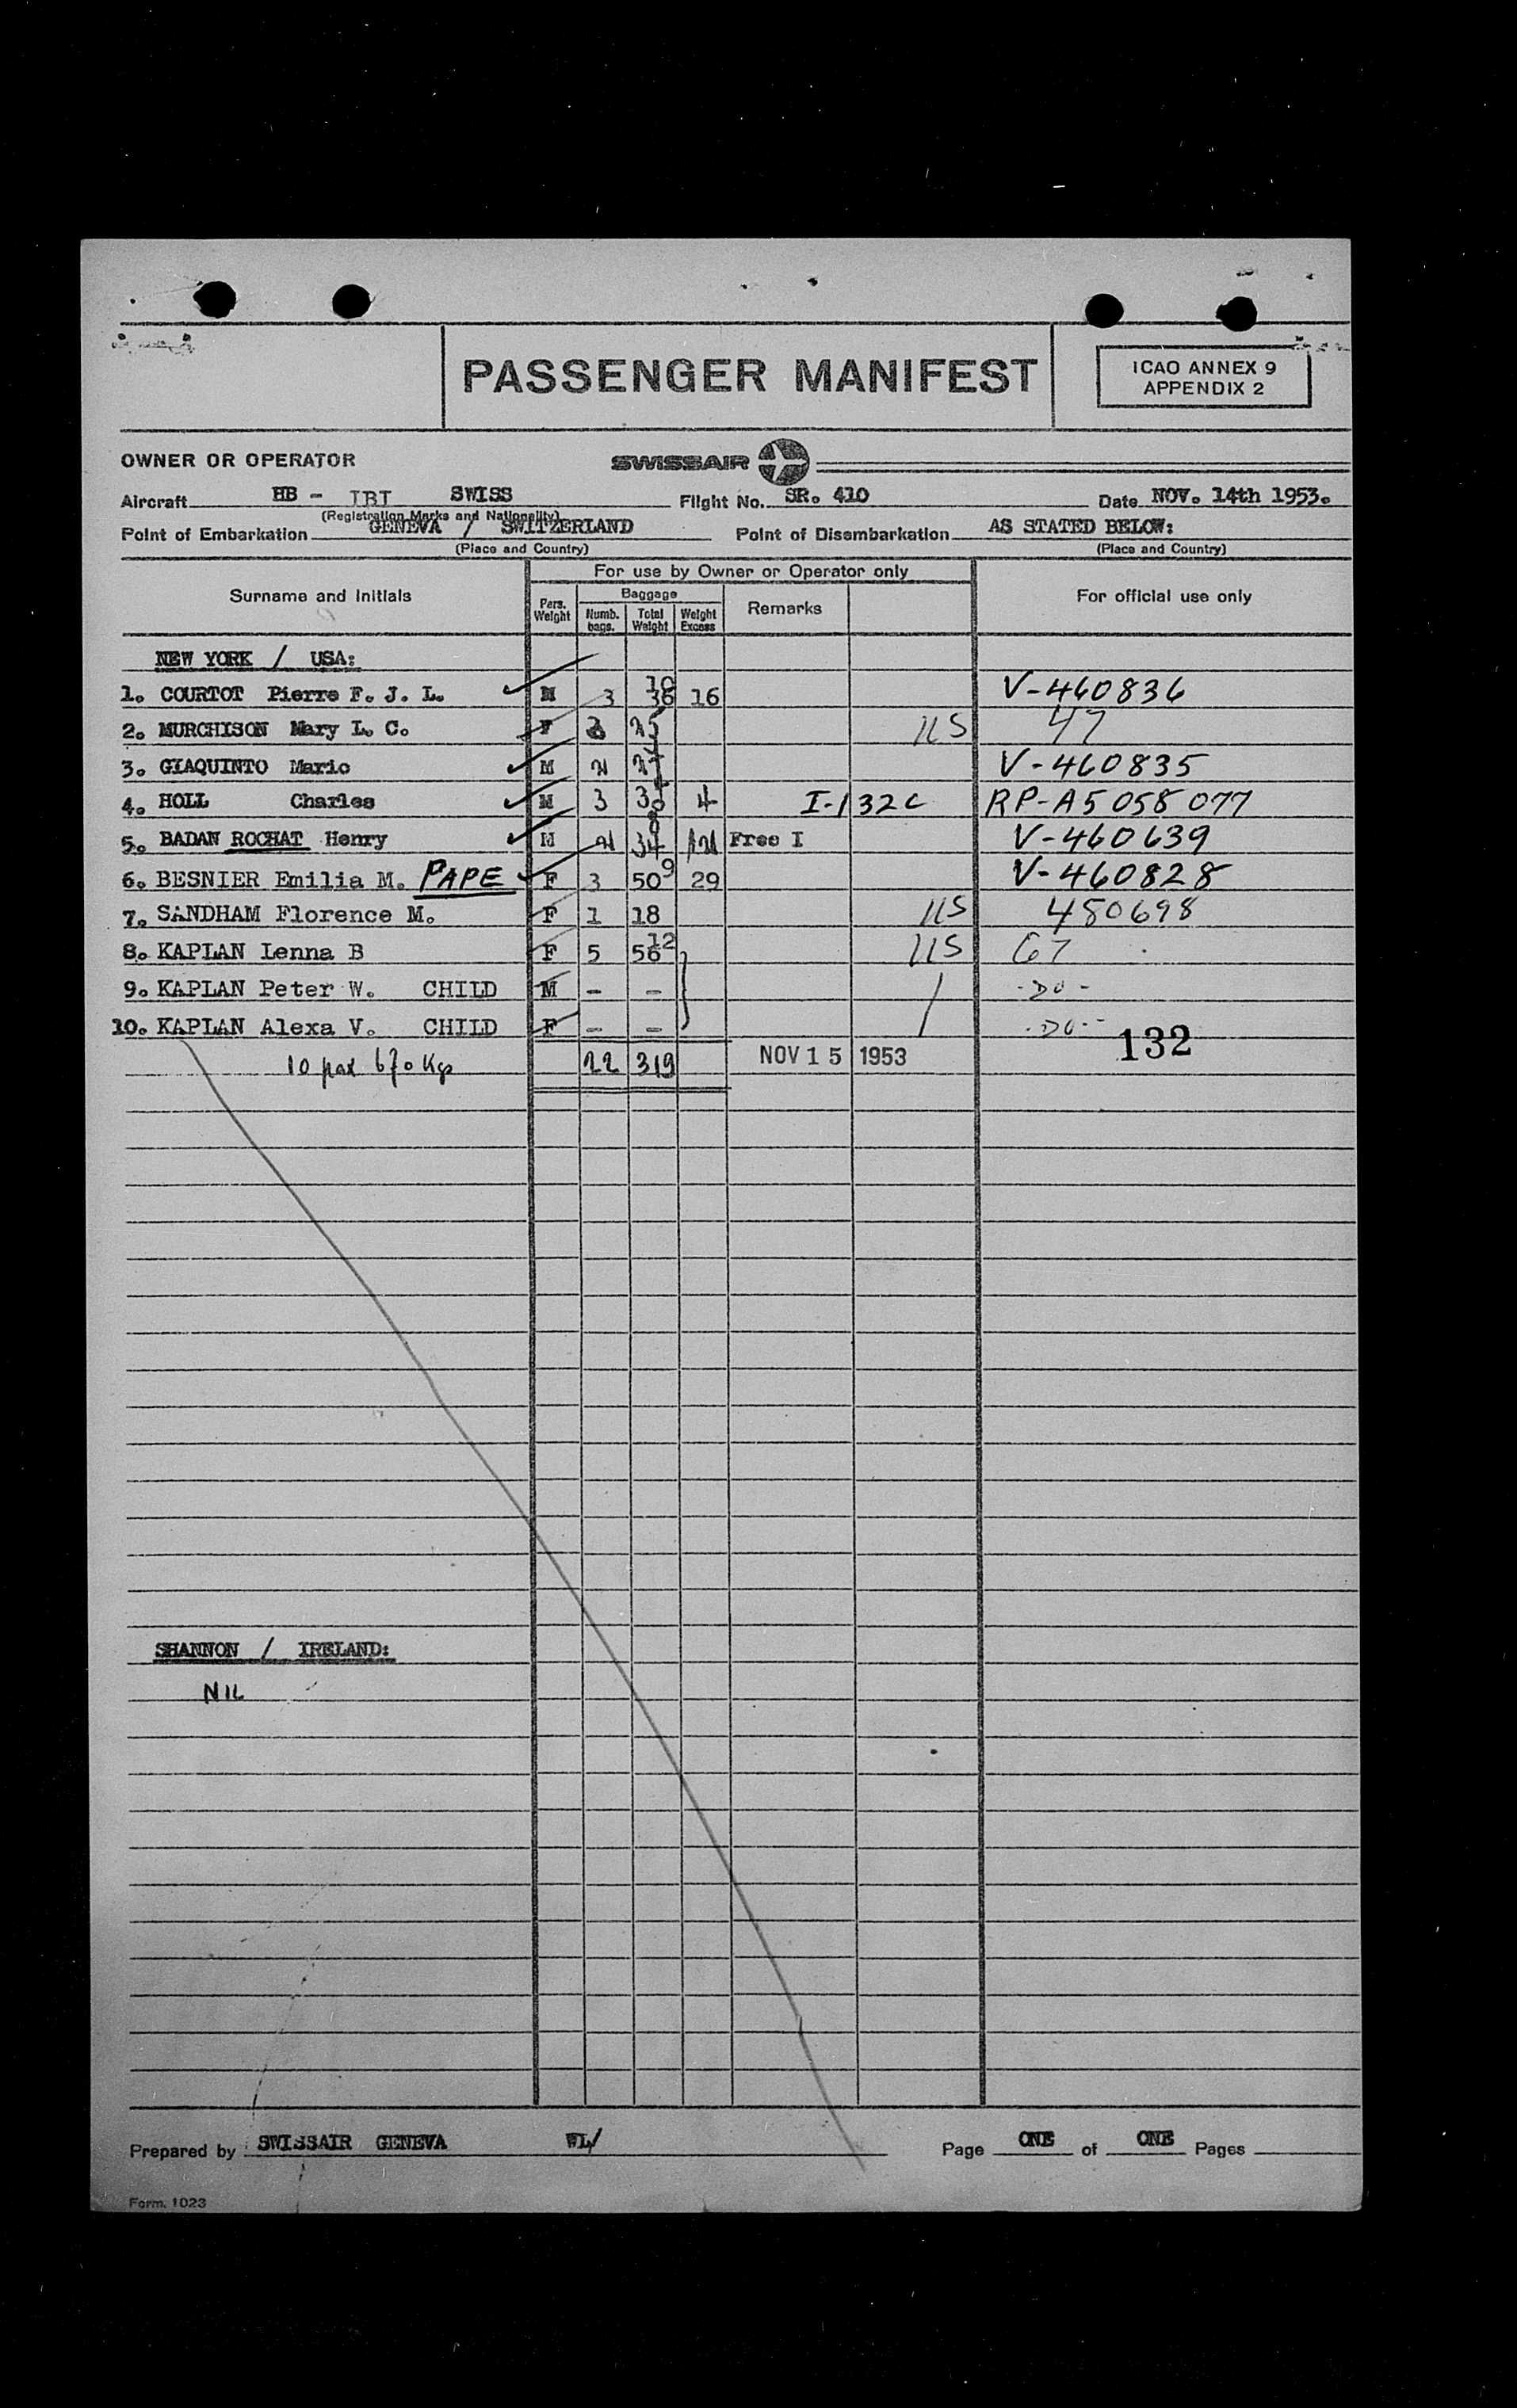 PASSENGER MANIFEST
ICAO ANNEX 9
APPENDIX 2
OWNER OR OPERATOR SWISSAIR
Aircraft HB - IBI SWISS Flight No. SR. 410 Date NOV. 14th 1953.
(Registration Marks and Nationality)
Point of Embarkation GENEVA / SWITZERLAND Point of Disembarkation AS STATED BELOW:
(Place and Country) (Place and Country)
For use by Owner or Operator only
Surname and Initials Pers. Weight Baggage Numb. bags. Total Weight Weight Excess Remarks For official use only
NEW YORK / USA:
1. COURTOT Pierre F. J. L. M 3 36 10 16 V-460836
2. MURCHISON Mary L. C. F 25 US 47
3. GIAQUINTO Mario M V-460835
4. HOLL Charles M 3 4 I-132C RP-A5058077
5. BADAN ROCHAT Henry M 34 8 Free I V-460639
6. BESNIER Emilia M. PAPE F 3 50 9 29 V-460828
7. SANDHAM Florence M. F 1 18 US 480698
8. KAPLAN Lenna B F 5 56 12 US 67
9. KAPLAN Peter W. CHILD M - - - DO -
10. KAPLAN Alexa V. CHILD F - - - DO -
132
10 pax 670 Kgs 22 319 NOV 15 1953
SHANNON / IRELAND:
NIL
Prepared by SWISSAIR GENEVA WL/ Page ONE of ONE Pages
Form. 1023